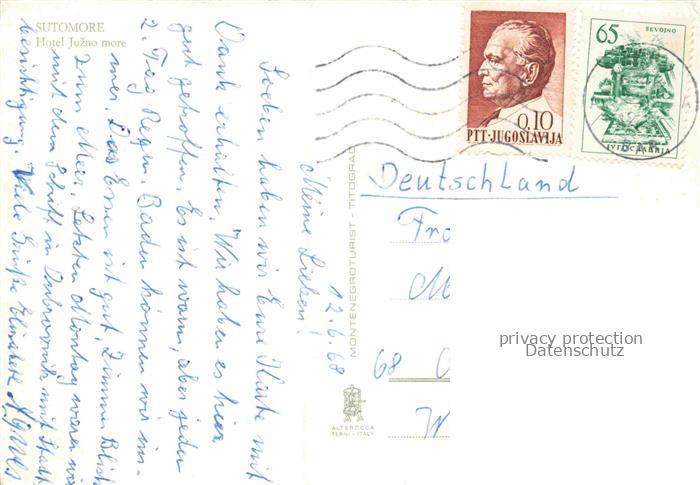 SUTOMORE
Hotel Južno more
12.6.68
Meine Lieben!
Soeben haben wir Eure Karte mit
Dank erhalten. Wir haben es hier
gut getroffen. Es ist warm, aber jeden
2. Tag Regen. Baden können wir im-
mer. Das Essen ist gut, Zimmer Blick
zum Meer. Letzten Montag waren wir
mit dem Schiff in Dubrovnik mit Stadt
besichtigung. Viele Grüße Elisabeth
MONTENEGROTURIST - TITOGRAD
ALTEROCCA
TERNI - ITALY
0,10
PTT·JUGOSLAVIJA
65
SEVOJNO
JUGOSLAVIJA
Deutschland
Fr
M
68
W
privacy protection
Datenschutz